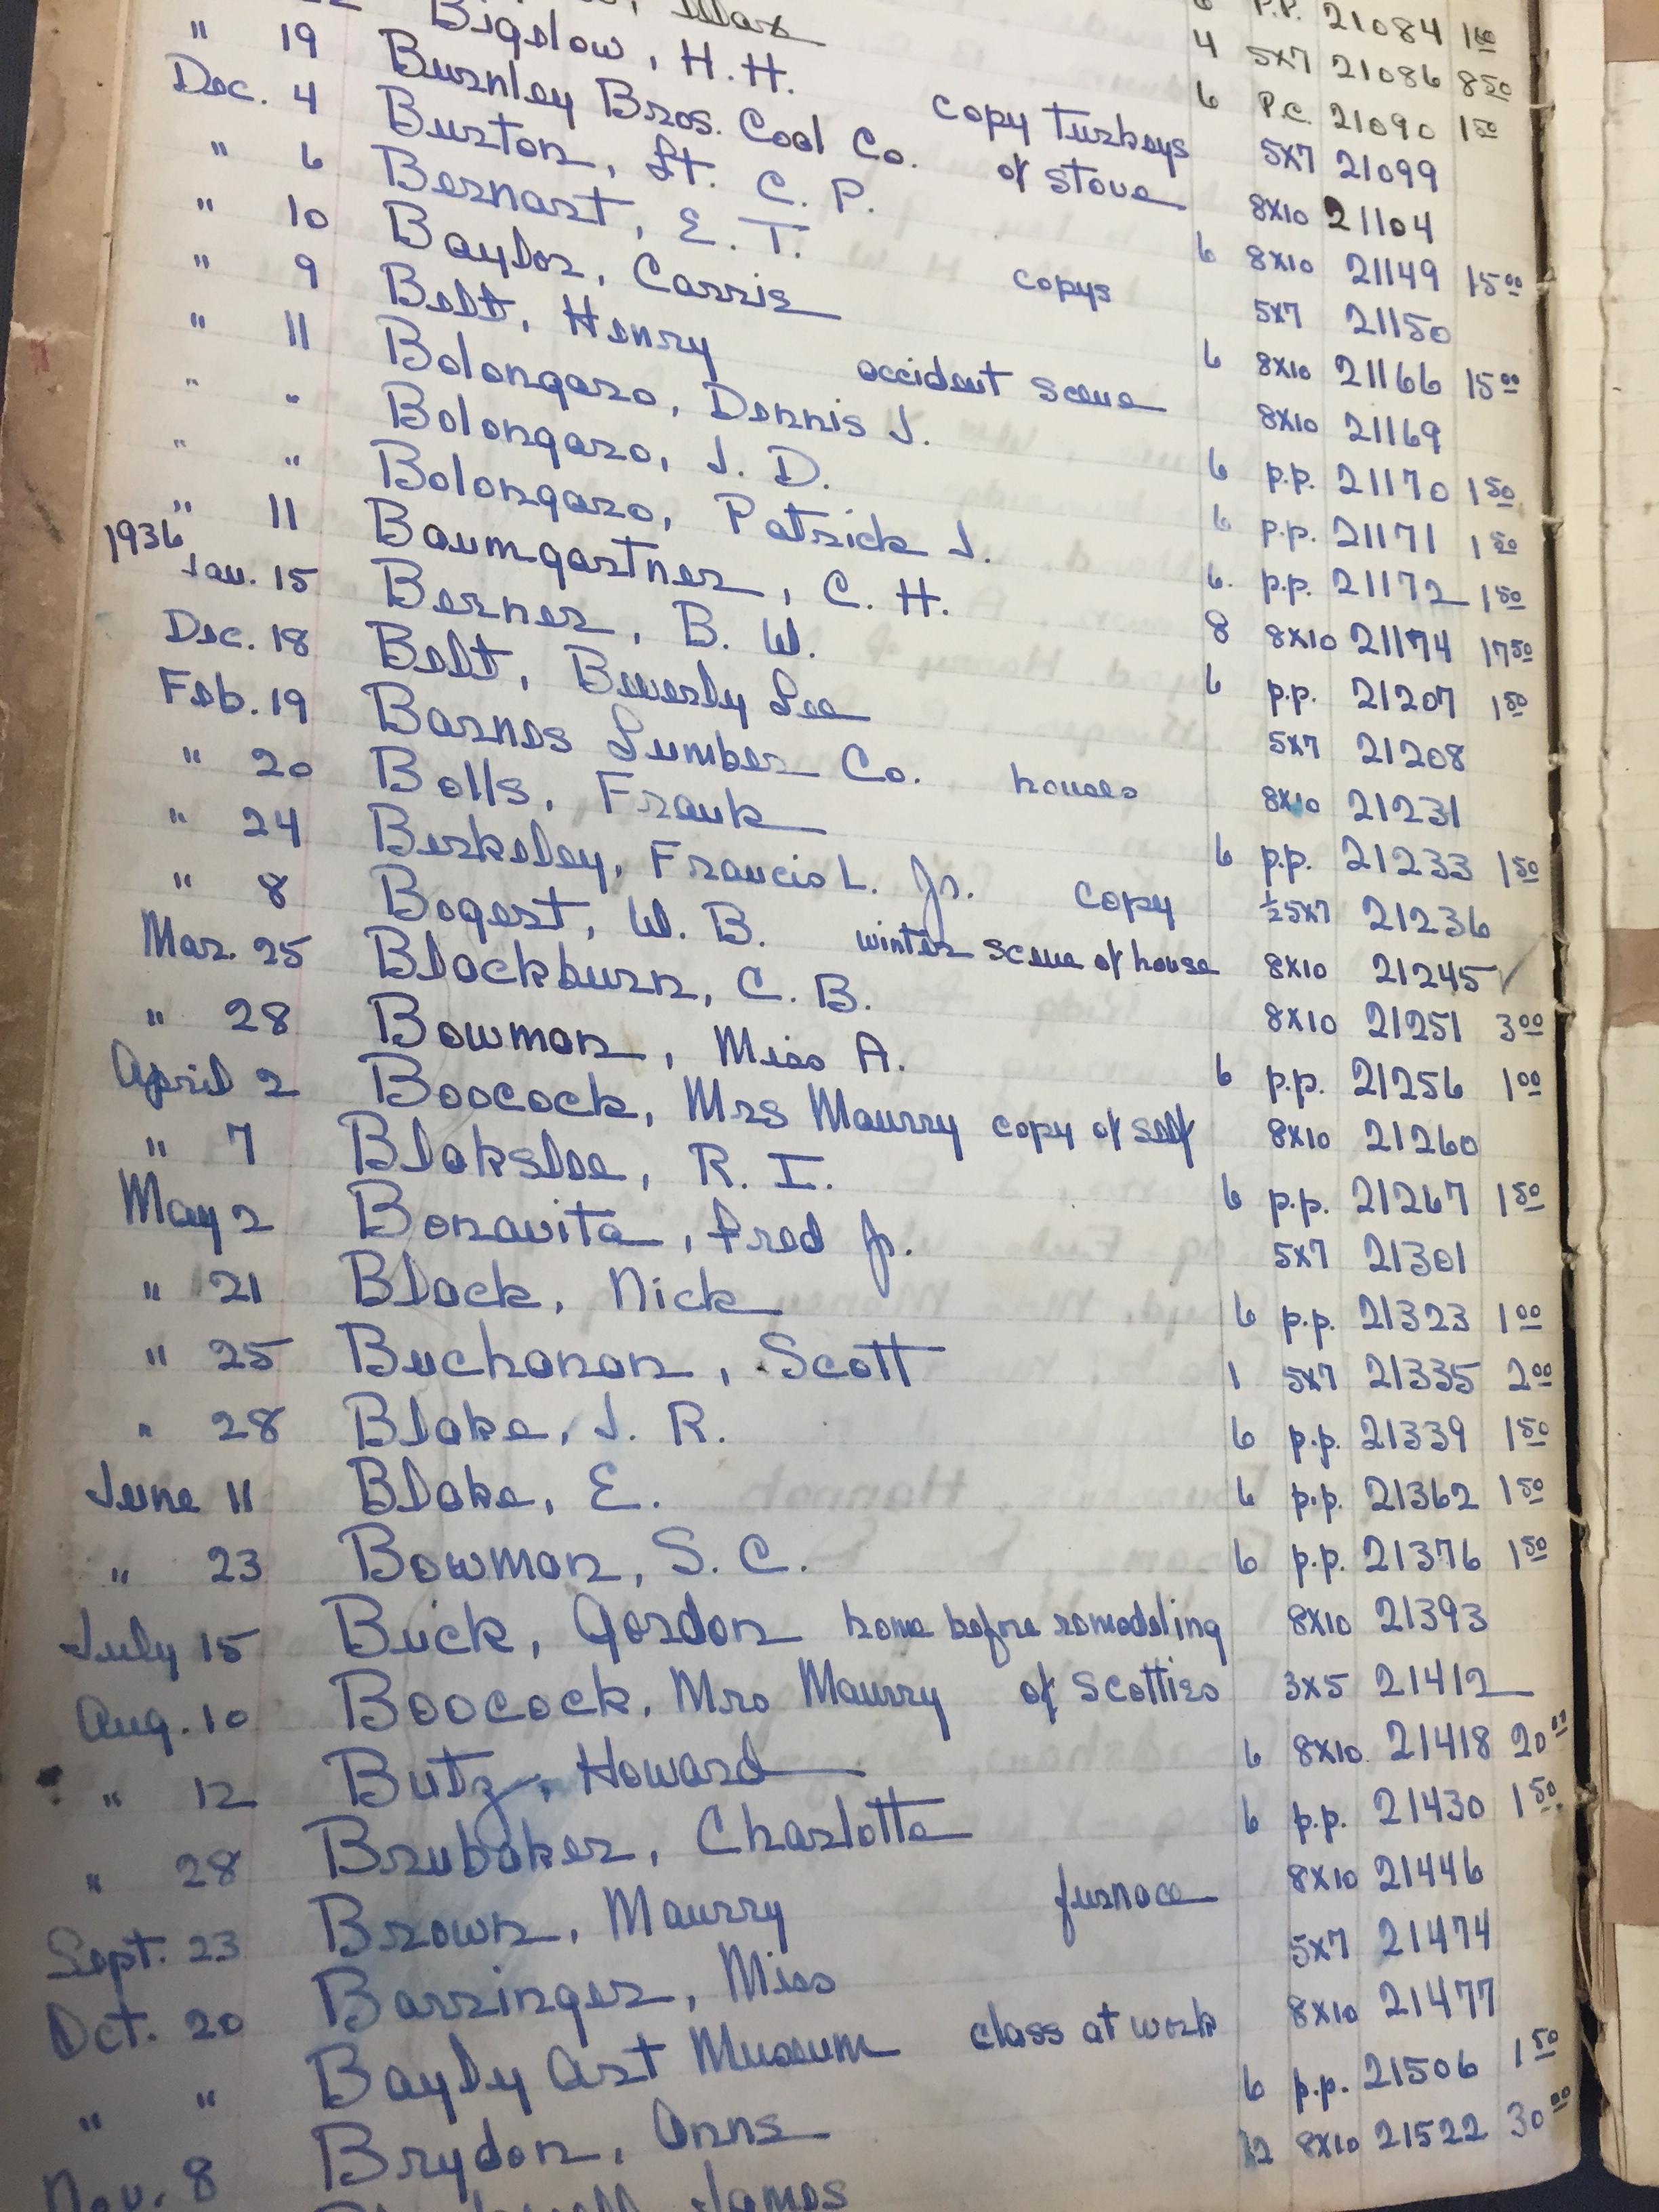 Max 6 P.C. 21090 1 50
Bigelow, H. H. copy Turkeys 5x7 21099
" 19 Burnley Bros. Coal Co. of stove 8x10 21104
Dec. 4 Burton, Lt. C. P. 6 8x10 21149 15 00
" 6 Bernart, E. T. copys 5x7 21150
" 10 Baylor, Carrie 6 8x10 21166 15 00
" 9 Belt, Henry accident scene 8x10 21169
" 11 Bolongaro, Dennis J. 6 p.p. 21170 1 50
" " Bolongaro, J. D. 6 p.p. 21171 1 50
" " Bolongaro, Patrick J. 6. p.p. 21172 1 50
" 11 Baumgartner, C. H. 8 8x10 21174 17 50
1936 Jan. 15 Berner, B. W. 6 p.p. 21207 1 50
Dec. 18 Belt, Beverly Lee 5x7 21208
Feb. 19 Barnes Lumber Co. houses 8x10 21231
" 20 Bolls, Frank 6 p.p. 21233 1 50
" 24 Berkeley, Francis L. Jr. copy ½ 5x7 21236
" 8 Bogert, W. B. winter scene of house 8x10 21245 ✓
Mar. 25 Blackburn, C. B. 8x10 21251 3 00
" 28 Bowman, Miss A. 6 p.p. 21256 1 00
April 2 Boocock, Mrs Maurry copy of self 8x10 21260
" 7 Blakslee, R. I. 6 p.p. 21267 1 50
May 2 Bonavita, Fred Jr. 5x7 21301
" 21 Black, Nick 6 p.p. 21323 1 00
" 25 Buchanan, Scott 1 5x7 21335 2 00
" 28 Blake, J. R. 6 p.p. 21339 1 50
June 11 Blake, E. 6 p.p. 21362 1 50
" 23 Bowman, S. C. 6 p.p. 21376 1 50
July 15 Buck, Gordon home before remodeling 8x10 21393
Aug. 10 Boocock, Mrs Maurry of Scotties 3x5 21412
" 12 Butz, Howard 6 8x10 21418 20 00
" 28 Brubaker, Charlotte 6 p.p. 21430 1 50
Sept. 23 Brown, Maurry furnace 8x10 21446
Oct. 20 Barringer, Miss 5x7 21474
" " Bayly Art Museum class at work 8x10 21477
Nov. 8 Brydon, Anne 6 p.p. 21506 1 50
James 12 8x10 21522 30 00
P.P. 21084 1 00
4 5x7 21086 8 50